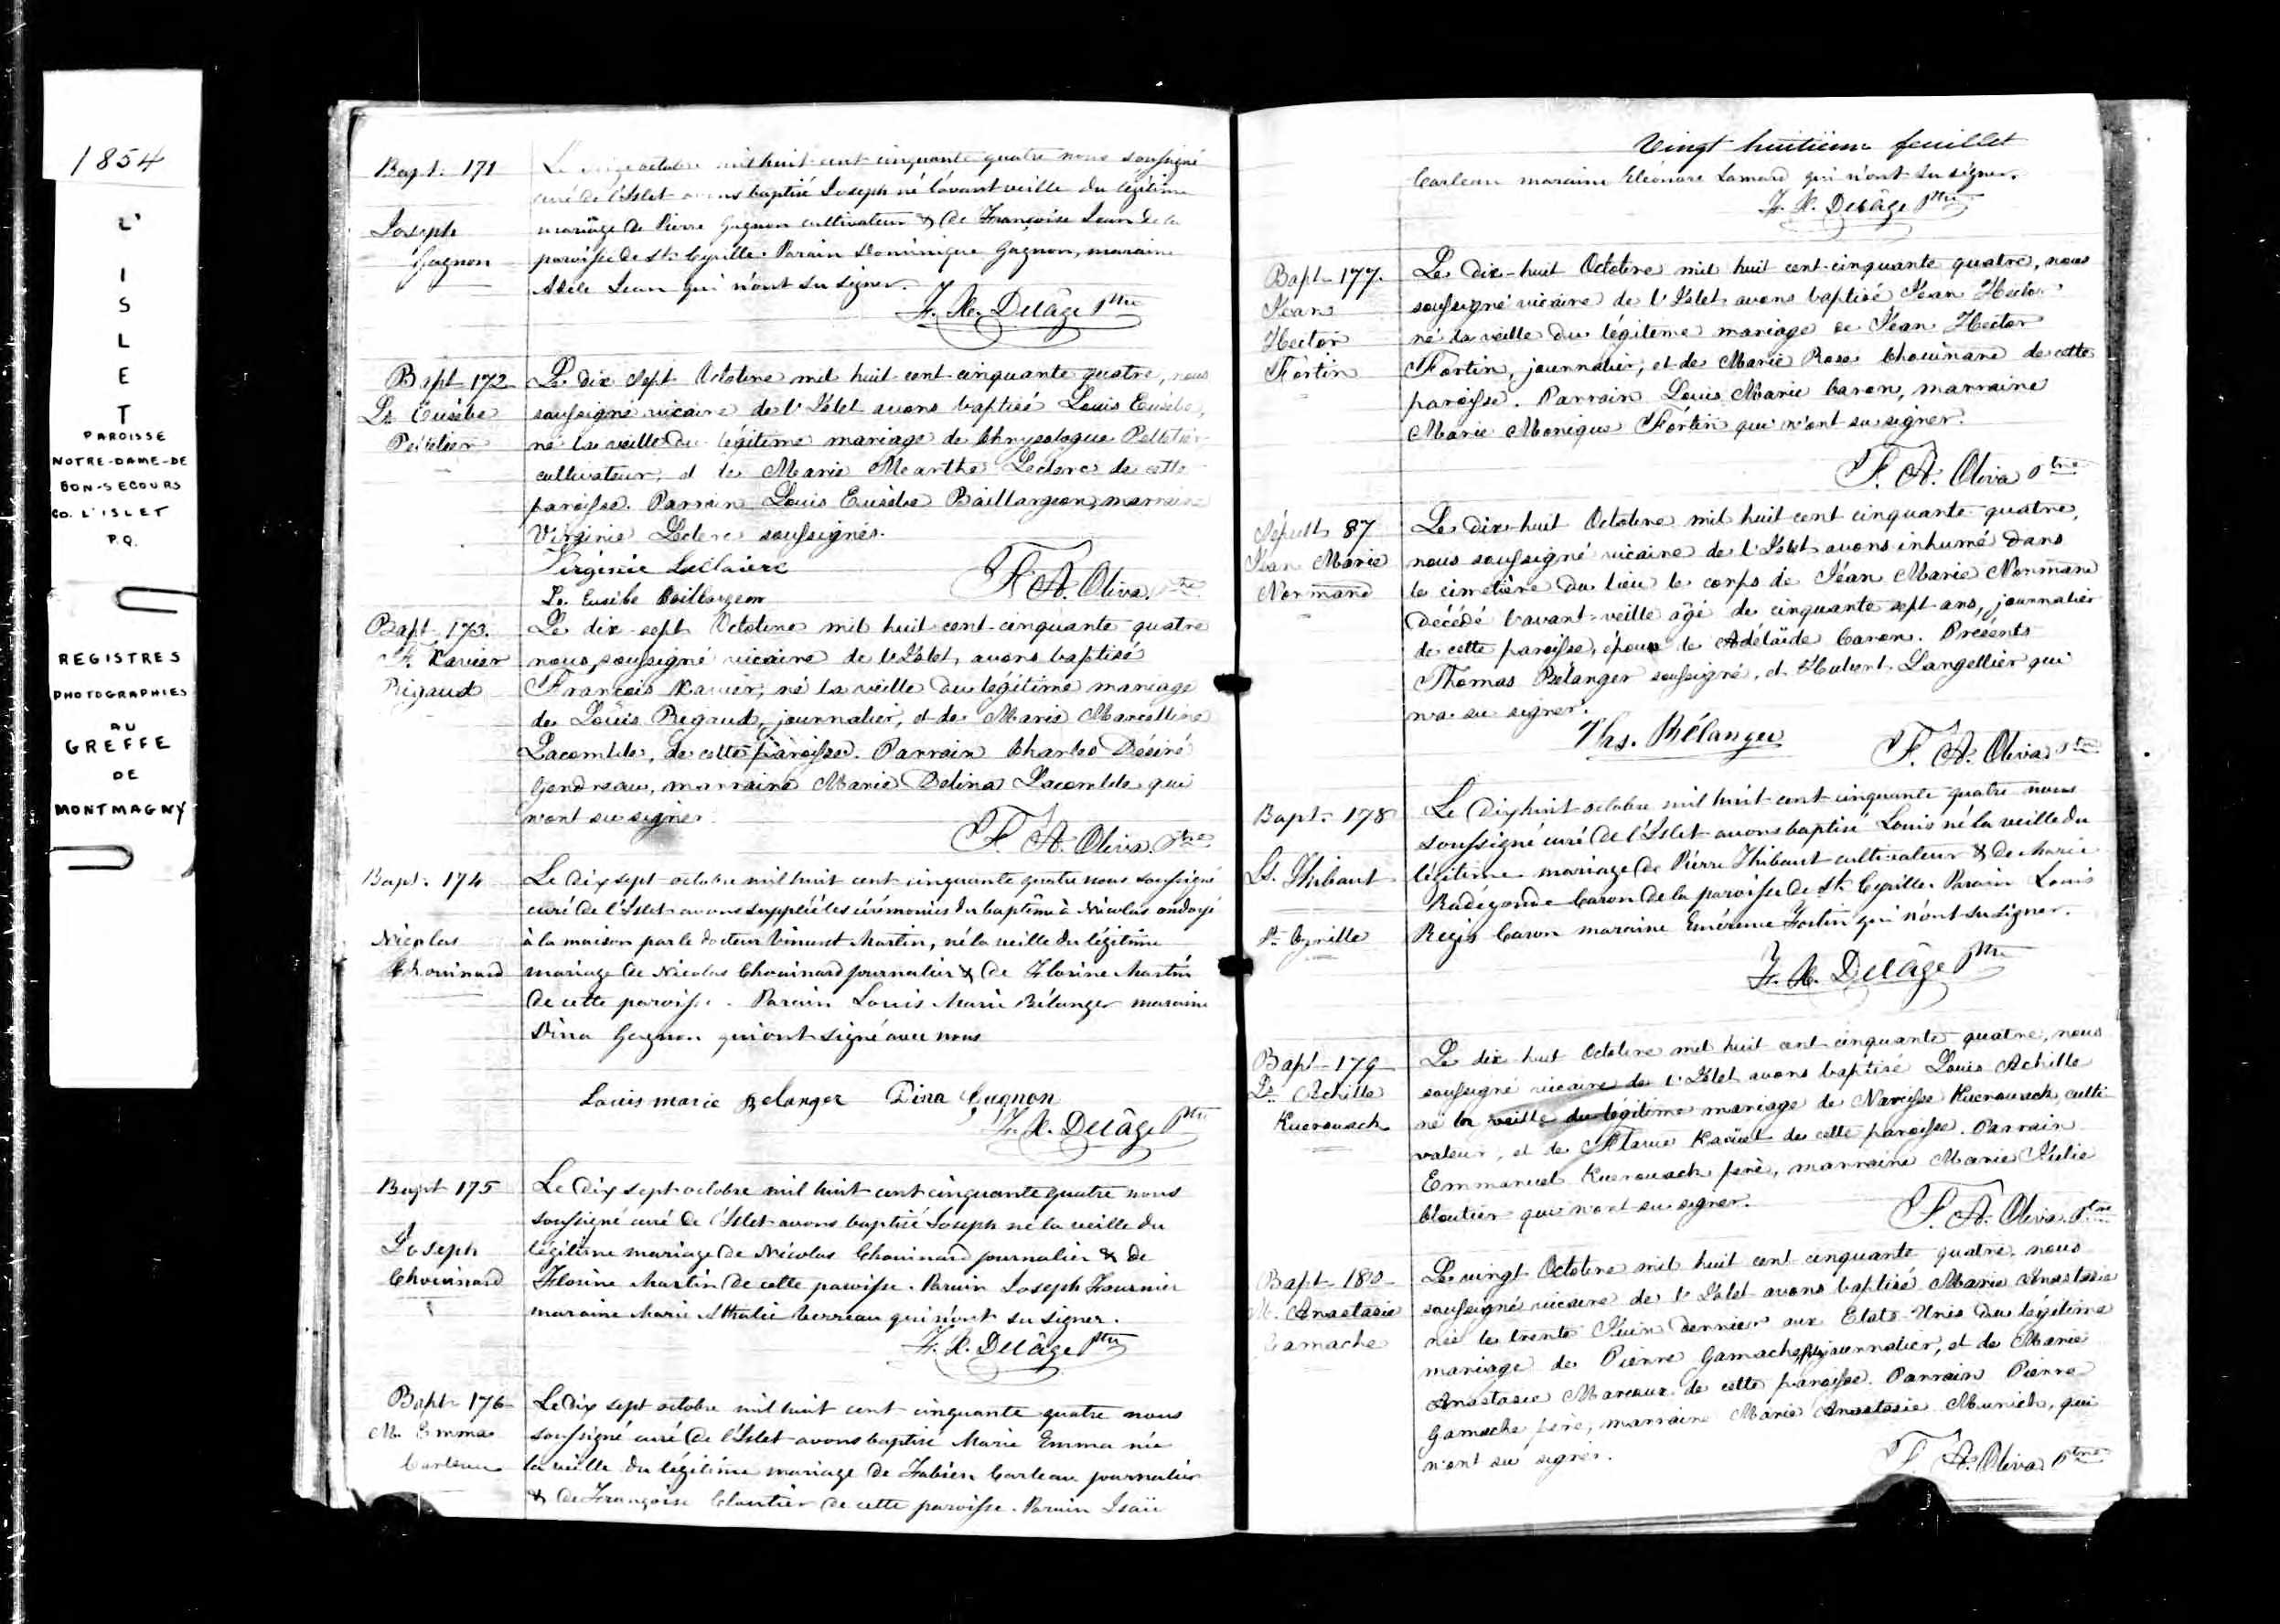 1854
L'
I
S
L
E
T
PAROISSE
NOTRE-DAME-DE
BON-SECOURS
CO. L'ISLET
P.Q.
REGISTRES
PHOTOGRAPHIES
AU
GREFFE
DE
MONTMAGNY
Bapt. 171
Joseph
Gagnon
Le octobre mil huit cent cinquante quatre nous soussigné
curé de l'Islet avons baptisé Joseph né l'avant veille du légitime
mariage de Pierre Gagnon cultivateur & de Françoise Jean de la
paroisse de St. Cyrille. Parain Dominique Gagnon, maraine
Adèle Jean qui n'ont su signer.
F. X. Delâge Ptre
Bapt 172
Ls Eusèbe
Pelletier
Le dix sept Octobre mil huit cent cinquante quatre, nous
soussigné vicaire de l'Islet avons baptisé Louis Eusèbe,
né la veille du légitime mariage de Chrysologue Pelletier
cultivateur, et de Marie Marthe Leclerc de cette
paroisse. Parrain Louis Eusèbe Baillargeon, marraine
Virginie Leclerc soussignés.
Virginie Leclaire
Ls. Eusèbe Baillargeon
F. A. Oliva, ptre
Bapt 173.
F. Xavier
Rigaud
Le dix-sept Octobre mil huit cent cinquante quatre
nous soussigné vicaire de l'Islet, avons baptisé
François Xavier, né la veille du légitime mariage
de Louis Regaud, journalier, et de Marie Marcelline
Lacombe, de cette paroisse. Parrain Charles Désiré
Gendreau, marraine Marie Delina Lacombe qui
n'ont su signer
F. A. Oliva. Ptre
Bapt. 174
Nicolas
Chouinard
Le dix sept octobre mil huit cent cinquante quatre nous soussigné
curé de l'Islet avons suppléé les cérémonies du baptême à Nicolas ondoyé
à la maison par le docteur Vincent Martin, né la veille du légitime
mariage de Nicolas Chouinard journalier & de Florine Martin
de cette paroisse. Parain Louis Marie Bélanger maraine
Dina Gagnon qui ont signé avec nous
Louis marie Belanger Dina Gugnon
F. X. Delâge Ptre
Bapt 175
Joseph
Chouinard
Le dix sept octobre mil huit cent cinquante quatre nous
soussigné curé de l'Islet avons baptisé Joseph né la veille du
légitime mariage de Nicolas Chouinard journalier & de
Florine Martin de cette paroisse. Parain Joseph Fournier
maraine Marie Athalie Cerreau qui n'ont su signer.
F. X. Delâge Ptre
Bapt 176
M. Emma
Carleau
Le dix sept octobre mil huit cent cinquante quatre nous
soussigné curé de l'Islet avons baptisé Marie Emma née
la veille du légitime mariage de Fabien Carleau journalier
& de Françoise Cloutier de cette paroisse. Parain Isaïe
Vingt huitième feuillet
Carleau maraine Eléonore Lamard qui n'ont su signer.
F. X. Delâge Ptre
Bapt 177.
Jean
Hector
Fortin
Le dix-huit Octobre mil huit cent cinquante quatre, nous
soussigné vicaire de l'Islet avons baptisé Jean Hector
né la veille du légitime mariage de Jean Hector
Fortin, journalier, et de Marie Rose Chouinard de cette
paroisse. Parrain Louis Marie Caron, marraine
Marie Monique Fortin qui n'ont su signer.
F. A. Oliva ptre
Sépult 87
Jean Marie
Normand
Le dix-huit Octobre mil huit cent cinquante quatre,
nous soussigné vicaire de l'Islet avons inhumé dans
le cimetière du lieu le corps de Jean Marie Normand
décédé l'avant-veille âgé de cinquante sept ans, journalier
de cette paroisse, époux de Adélaïde Caron. Présents
Thomas Bélanger soussigné, et Hubert Langellier qui
n'a su signer.
Ths. Bélanger
F. A. Oliva Ptre
Bapt. 178
Ls. Thibaut
St. Cyrille
Le dix huit octobre mil huit cent cinquante quatre nous
soussigné curé de l'Islet avons baptisé Louis né la veille du
légitime mariage de Pierre Thibaut cultivateur & de Marie
Radégonde Caron de la paroisse de St. Cyrille. Parain Louis
Régis Caron maraine Emérence Fortin qui n'ont su signer.
F. X. Delâge Ptre
Bapt 179
Ls Achille
Kuerouack
Le dix huit Octobre mil huit cent cinquante quatre, nous
soussigné vicaire de l'Islet avons baptisé Louis Achille
né la veille du légitime mariage de Narcisse Kuerouack, culti
vateur, et de Flavie de cette paroisse. Parrain
Emmanuel Kuerouack père, marraine Marie Julie
Cloutier qui n'ont su signer.
F. A. Oliva. Ptre
Bapt 180
M. Anastasie
Gamache
Le vingt Octobre mil huit cent cinquante quatre, nous
soussigné vicaire de l'Islet avons baptisé Marie Anastasie
née le trente Juin dernier aux Etats-Unis du légitime
mariage de Pierre Gamache, journalier, et de Marie
Anastasie Marceau de cette paroisse. Parrain Pierre
Gamache père, marraine Marie Anastasie Munich, qui
n'ont su signer.
F. A. Oliva Ptre